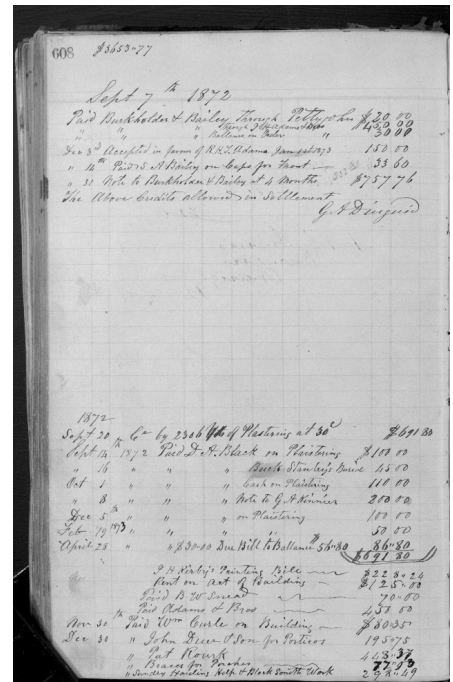 608 $3653-77
Sept 7th 1872
Paid Burkholder & Bailey Through Pettyjohn $20 00
" " " Through J H Adams & Bro $450 00
" " " Ballance on Order " 30 00
Dec 3rd Accepted in favor of R.H.T. Adams Jan 1st 1873 150 00
" 14th Paid S A Bailey on Caps for Front 33 60
" 31 Note to Burkholder & Bailey at 4 Months $757 76
The Above Credits allowed in Settlement
G A Diuguid
1872
Sept 20th Cr by 2306 yds of Plastering at 30c $691 80
Sept 14 1872 Paid D. A. Black on Plaistering $100 00
" 16 " " " Buck Stanley's Burial 45 00
Oct 1 " " " Cash on Plaistering 110 00
" 8 " " " Note to G A Kinnier 200 00
Dec 5th " " " on Plaistering 100 00
Feb 19 1873 " " " 50 00
April 28 " " $30-00 Due Bill to Ballance $56-80 86-80
$691 80
J. H. Kirby's Painting Bill $228-24
Rent on act of Building $125-00
Paid B W Snead 70-00
Paid Adams & Bros 450 00
Nov 30th Paid Wm Carle on Building $80 35
Dec 30 " John Due & Son for Porticos 195-75
" Pat Rourk 448-37
" Braces for Porches 77-03
" Sunday Hauling Help & Black Smith Work 298-49